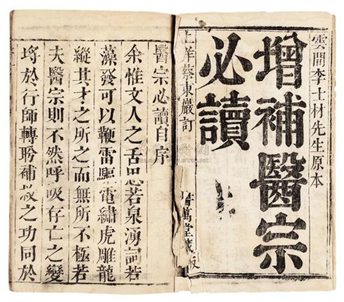 雲間李士材先生原本
增補醫宗
必讀
蔡東嚴訂
萬堂藏
醫宗必讀自序
余惟文人之舌思若泉湧論若
藻發可以鞭雷驅電繡虎雕龍
縱其才之所之而無所不極若
夫醫宗則不然呼吸存亡之變
埒於行師轉盻補救之功同於